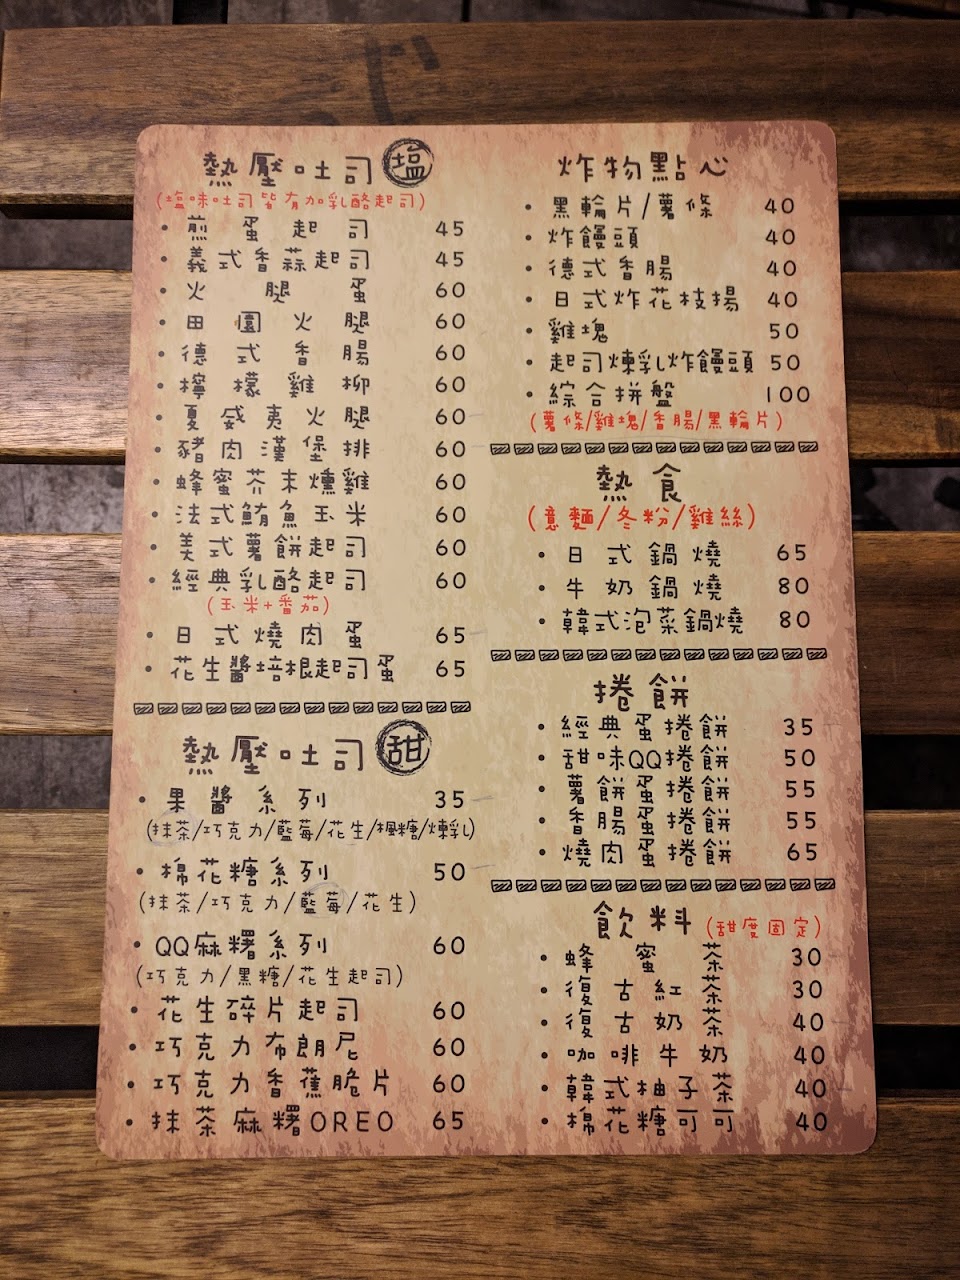 熱壓吐司 塩
(塩味吐司皆有加乳酪起司)
• 煎蛋起司 45
• 義式香蒜起司 45
• 火腿蛋 60
• 田園火腿 60
• 德式香腸 60
• 檸檬雞柳 60
• 夏威夷火腿 60
• 豬肉漢堡排 60
• 蜂蜜芥末燻雞 60
• 法式鮪魚玉米 60
• 美式薯餅起司 60
• 經典乳酪起司 60
(玉米+番茄)
• 日式燒肉蛋 65
• 花生醬培根起司蛋 65
熱壓吐司 甜
• 果醬系列 35
(抹茶/巧克力/藍莓/花生/楓糖/煉乳)
• 棉花糖系列 50
(抹茶/巧克力/藍莓/花生)
• QQ麻糬系列 60
(巧克力/黑糖/花生起司)
• 花生碎片起司 60
• 巧克力布朗尼 60
• 巧克力香蕉脆片 60
• 抹茶麻糬OREO 65
炸物點心
• 黑輪片/薯條 40
• 炸饅頭 40
• 德式香腸 40
• 日式炸花枝揚 40
• 雞塊 50
• 起司煉乳炸饅頭 50
• 綜合拼盤 100
(薯條/雞塊/香腸/黑輪片)
熱食
(意麵/冬粉/雞絲)
• 日式鍋燒 65
• 牛奶鍋燒 80
• 韓式泡菜鍋燒 80
捲餅
• 經典蛋捲餅 35
• 甜味QQ捲餅 50
• 薯餅蛋捲餅 55
• 香腸蛋捲餅 55
• 燒肉蛋捲餅 65
飲料 (甜度固定)
• 蜂蜜茶 30
• 復古紅茶 30
• 復古奶茶 40
• 咖啡牛奶 40
• 韓式柚子茶 40
• 棉花糖可可 40